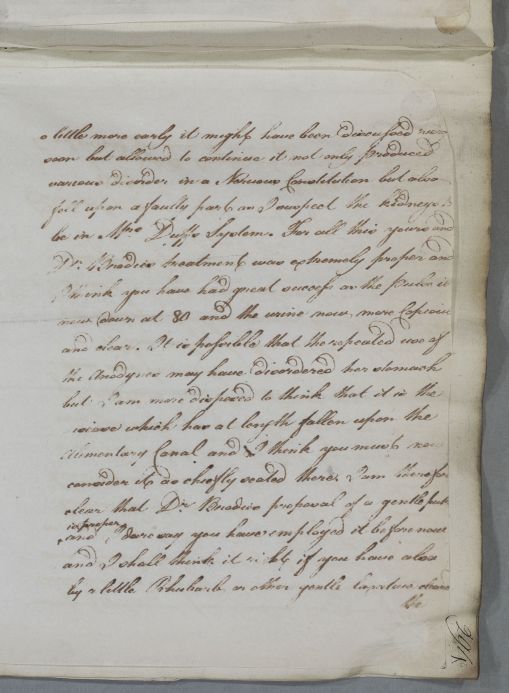 a little more early it might have been discussed
soon but allowed to continue it not only produced
various disorder in a Nervous Constitution but also
fell upon a faulty part as I suspect the kidneys to
be in Mrs Duffs System. For all this yours and
Dr Brodies treatment was extremely proper and
I think you have had great success as the pulse is
now down at 80 and the urine now more Copious
and clear. It is possible that the repeated use of
the Anodynes may have disordered her stomach
but I am more disposed to think that it is the
which has at length fallen upon the
Alimentary Canal and I think you must now
consider it as chiefly seated there. I am therefore
clear that Dr Brodies proposal of a gentle
is proper
and I dare say you have employed it before now
and I shall think it right if you have also
by a little Rhubarb or other gentle Laxative
the